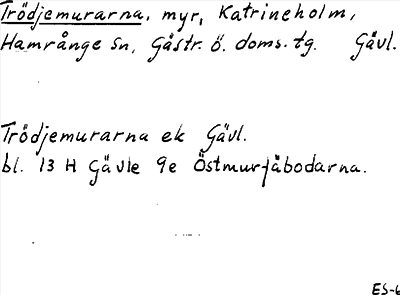 Trödjemurarna, myr, Katrineholm,
Hamrånge sn, Gästr. ö. doms. tg. Gävl.
Trödjemurarna ek Gävl.
bl. 13 H Gävle 9e Östmurfäbodarna.
ES-6